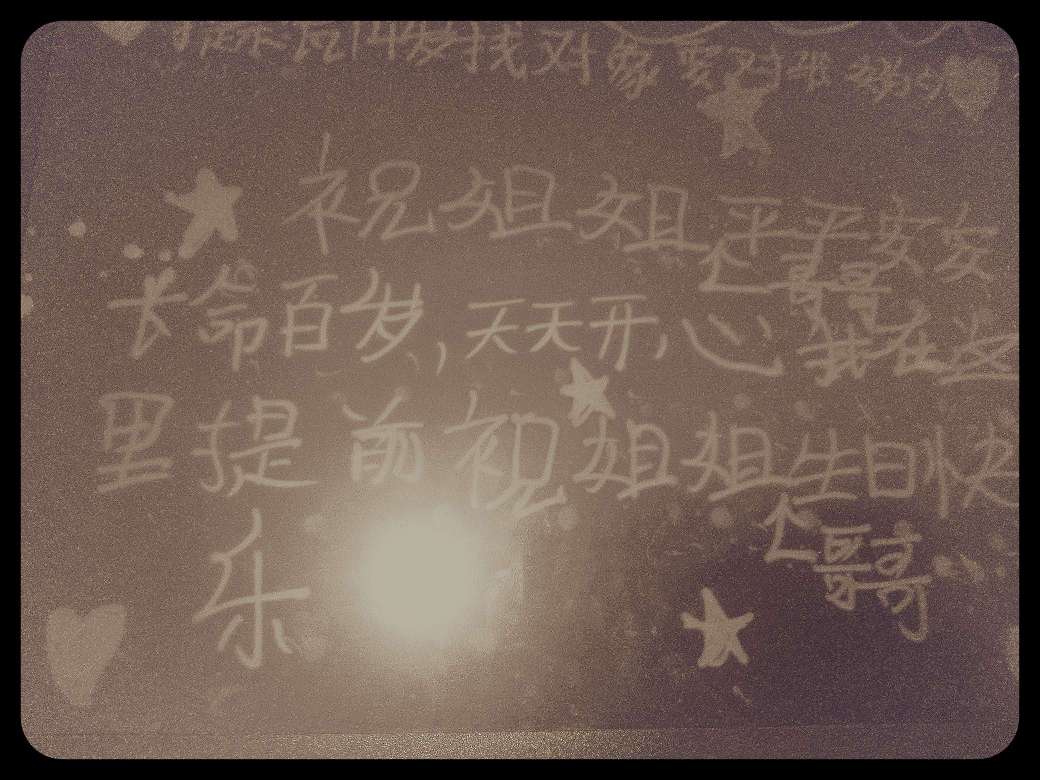 找对象要对
祝姐姐平平安安
哥哥
长命百岁,天天开心 我在这
里提前祝姐姐生日快
哥哥
乐